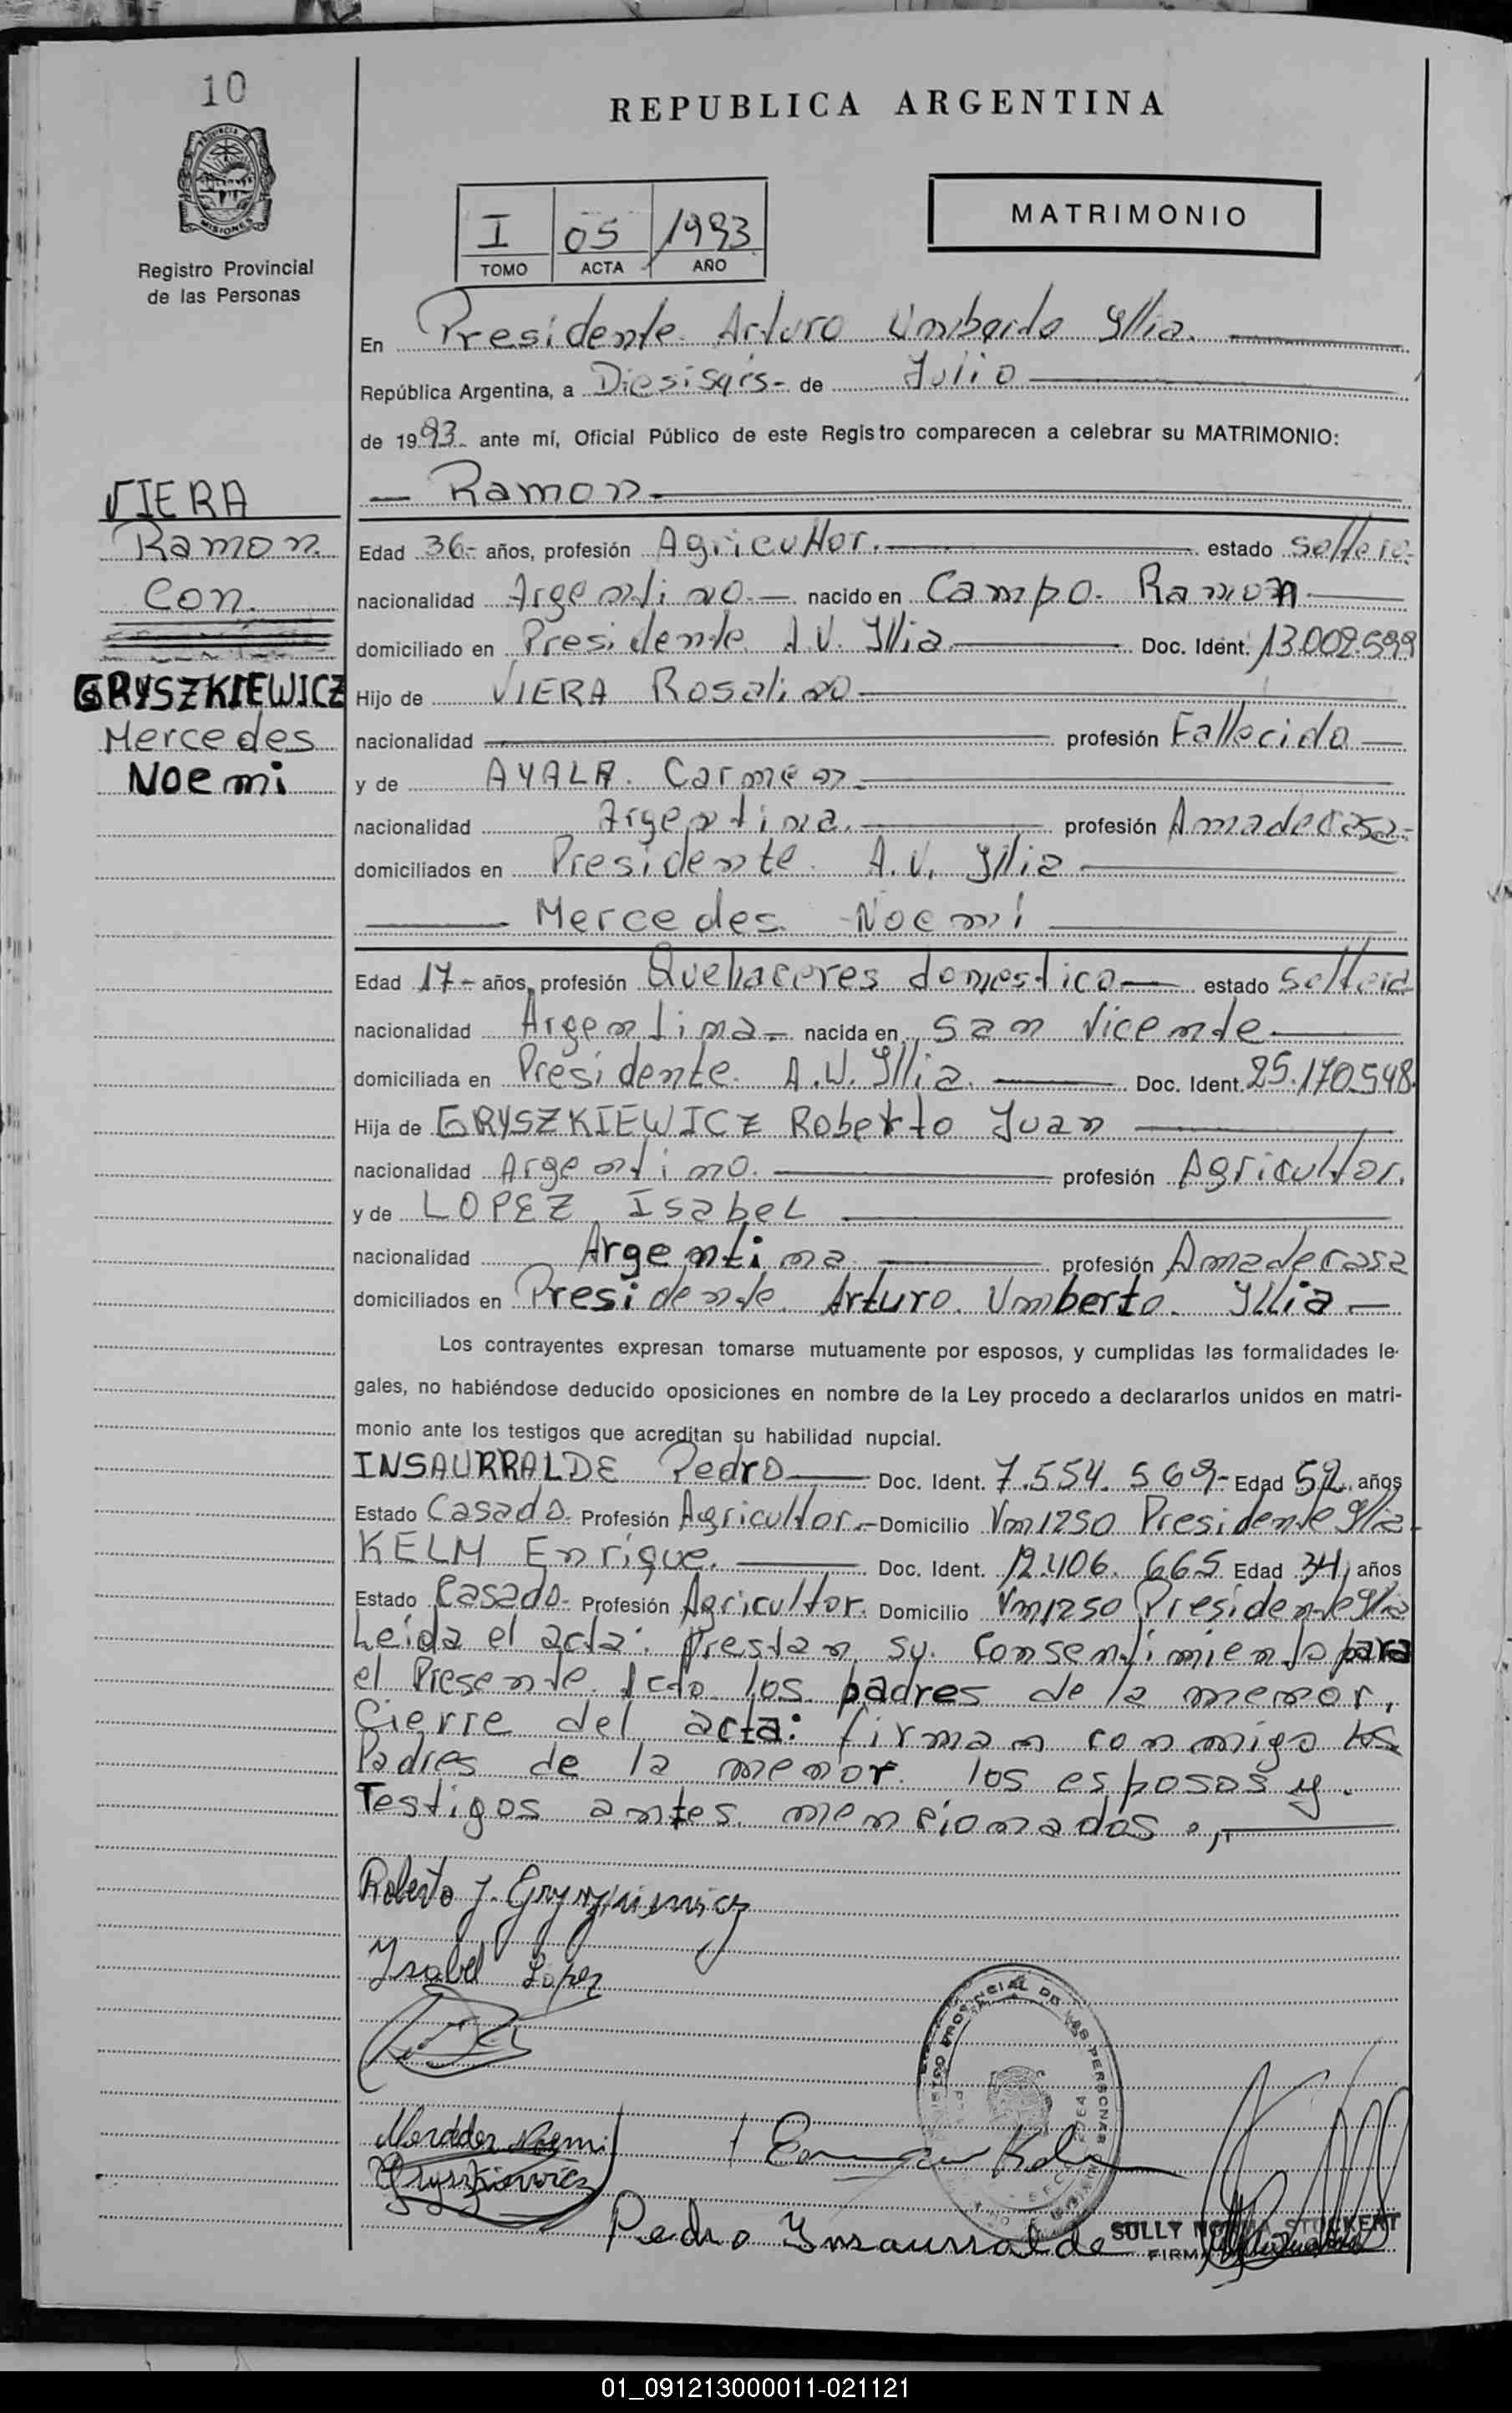 10
REPUBLICA ARGENTINA
PROVINCIA DE
MISIONES
Registro Provincial
de las Personas
I 05 1993
TOMO ACTA AÑO
MATRIMONIO
En Presidente Arturo Umberto Yllia.
República Argentina, a Diesiseis - de Julio
de 1993 ante mí, Oficial Público de este Registro comparecen a celebrar su MATRIMONIO:
VIERA
Ramon
Con.
GRYSZKIEWICZ
Mercedes
Noemi
— Ramon
Edad 36- años, profesión Agricultor. estado soltero.
nacionalidad Argentino. nacido en Campo. Ramon
domiciliado en Presidente A.U. Yllia Doc. Ident. 13.002.599
Hijo de VIERA Rosalino
nacionalidad profesión Fallecido
y de AYALA. Carmen.
nacionalidad Argentina. profesión Amadecasa-
domiciliados en Presidente A.U. Yllia
Mercedes Noemí
Edad 17- años, profesión Quehaceres domestico estado soltera
nacionalidad Argentina nacida en San Vicente
domiciliada en Presidente. A.U. Yllia. Doc. Ident. 25.170.548.
Hija de GRYSZKIEWICZ Roberto Juan
nacionalidad Argentino. profesión Agricultor.
y de LOPEZ Isabel
nacionalidad Argentina profesión Amadecasa
domiciliados en Presidente. Arturo. Umberto. Yllia —
Los contrayentes expresan tomarse mutuamente por esposos, y cumplidas las formalidades le-
gales, no habiéndose deducido oposiciones en nombre de la Ley procedo a declararlos unidos en matri-
monio ante los testigos que acreditan su habilidad nupcial.
INSAURRALDE Pedro Doc. Ident. 7.554.569- Edad 52 años
Estado Casado. Profesión Agricultor.- Domicilio Vm1250 Presidente Yllia.
KELM Enrique. Doc. Ident. 12.406.665 Edad 34 años
Estado Casado- Profesión Agricultor. Domicilio Vm1250 Presidente Yllia
Leida el acta: Prestan su consentimiento para
el Presente Acto los padres de la menor.
Cierre del acta: firman conmigo los
Padres de la menor. los esposos y.
Testigos antes mencionados.,,
Roberto J. Gryszkiewicz
Ysabel Lopez
Mercedes Noemi
Gryszkiewicz
Pedro Ynsaurralde
PROVINCIAL DE LAS PERSONAS
SULLY STOCKERT
FIRMA
01_091213000011-021121